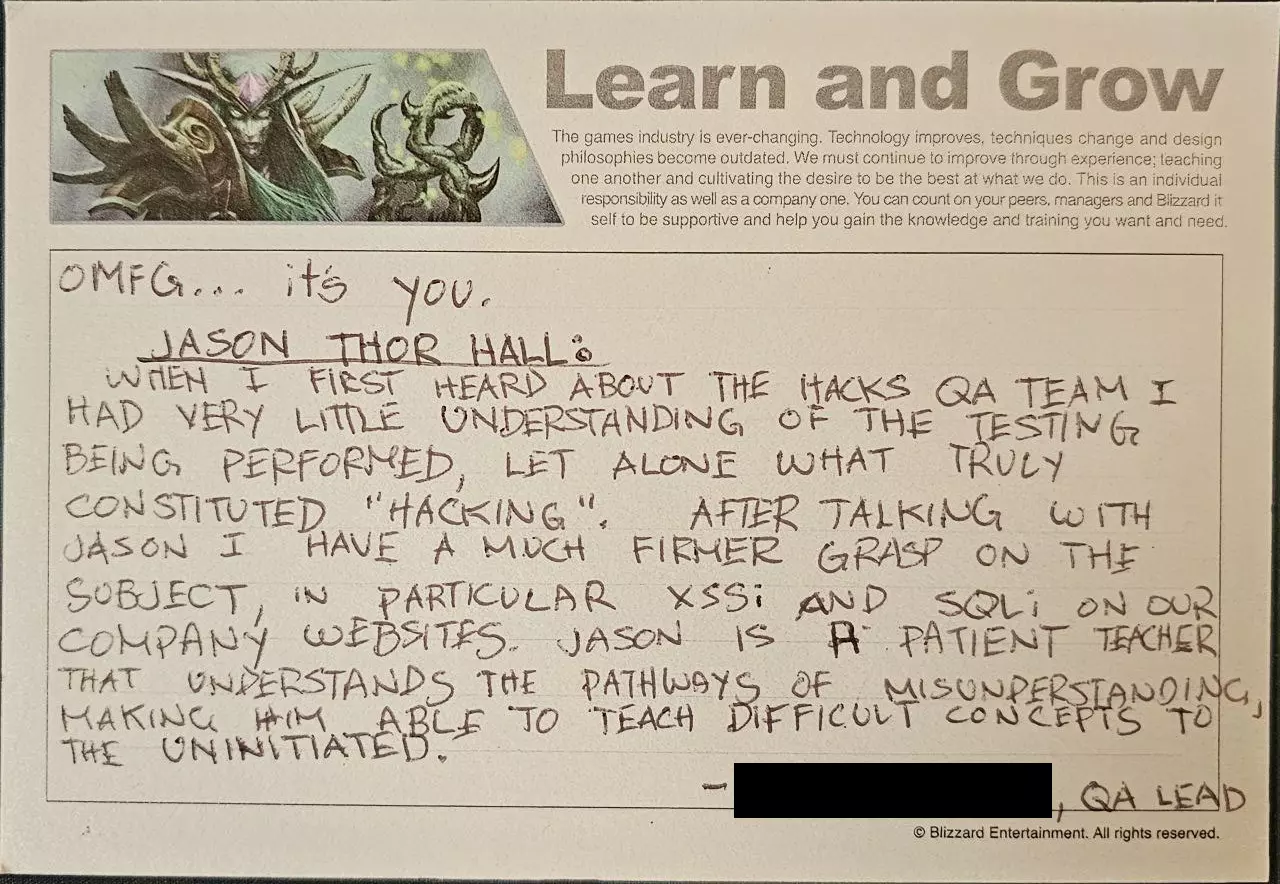 Learn and Grow
The games industry is ever-changing. Technology improves, techniques change and design
philosophies become outdated. We must continue to improve through experience; teaching
one another and cultivating the desire to be the best at what we do. This is an individual
responsibility as well as a company one. You can count on your peers, managers and Blizzard it
self to be supportive and help you gain the knowledge and training you want and need.
OMFG... it's you.
JASON THOR HALL:
WHEN I FIRST HEARD ABOUT THE HACKS QA TEAM I
HAD VERY LITTLE UNDERSTANDING OF THE TESTING
BEING PERFORMED, LET ALONE WHAT TRULY
CONSTITUTED "HACKING". AFTER TALKING WITH
JASON I HAVE A MUCH FIRMER GRASP ON THE
SUBJECT, IN PARTICULAR XSSi AND SQLi ON OUR
COMPANY WEBSITES. JASON IS A PATIENT TEACHER
THAT UNDERSTANDS THE PATHWAYS OF MISUNDERSTANDING,
MAKING HIM ABLE TO TEACH DIFFICULT CONCEPTS TO
THE UNINITIATED.
– , QA LEAD
© Blizzard Entertainment. All rights reserved.